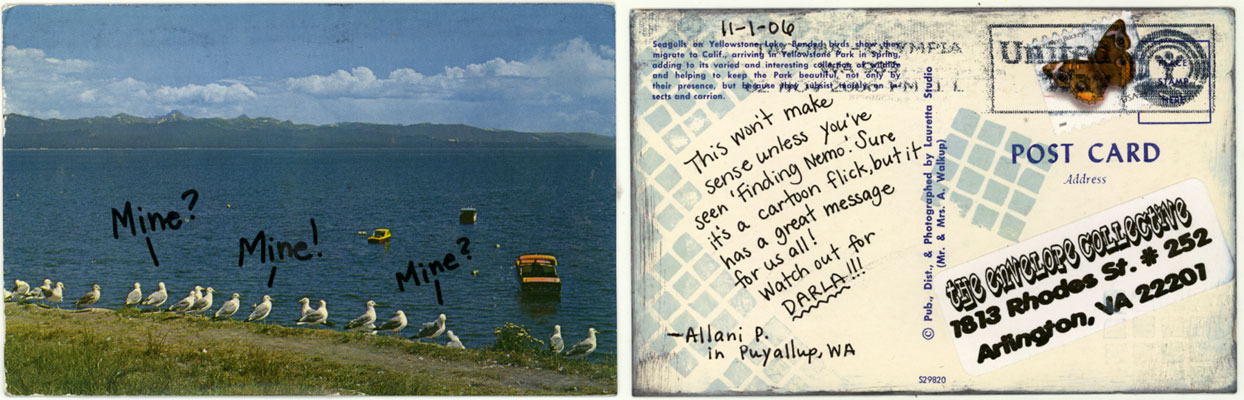 Mine?
Mine!
Mine?
11-1-06
Seagulls on Yellowstone Lake. Banded birds show they
migrate to Calif., arriving in Yellowstone Park in Spring,
adding to its varied and interesting collection of wildlife
and helping to keep the Park beautiful, not only by
their presence, but because they subsist largely on in-
sects and carrion.
OLYMPIA
United
PLACE
STAMP
HERE
This won't make
sense unless you've
seen 'Finding Nemo'. Sure
it's a cartoon flick, but it
has a great message
for us all!
Watch out for
DARLA!!!
—Allani P.
in Puyallup, WA
© Pub., Dist., & Photographed by Lauretta Studio
(Mr. & Mrs. A. Walkup)
POST CARD
Address
the ENVELOPE COLLECTIVE
1813 Rhodes St. # 252
Arlington, VA 22201
S29820